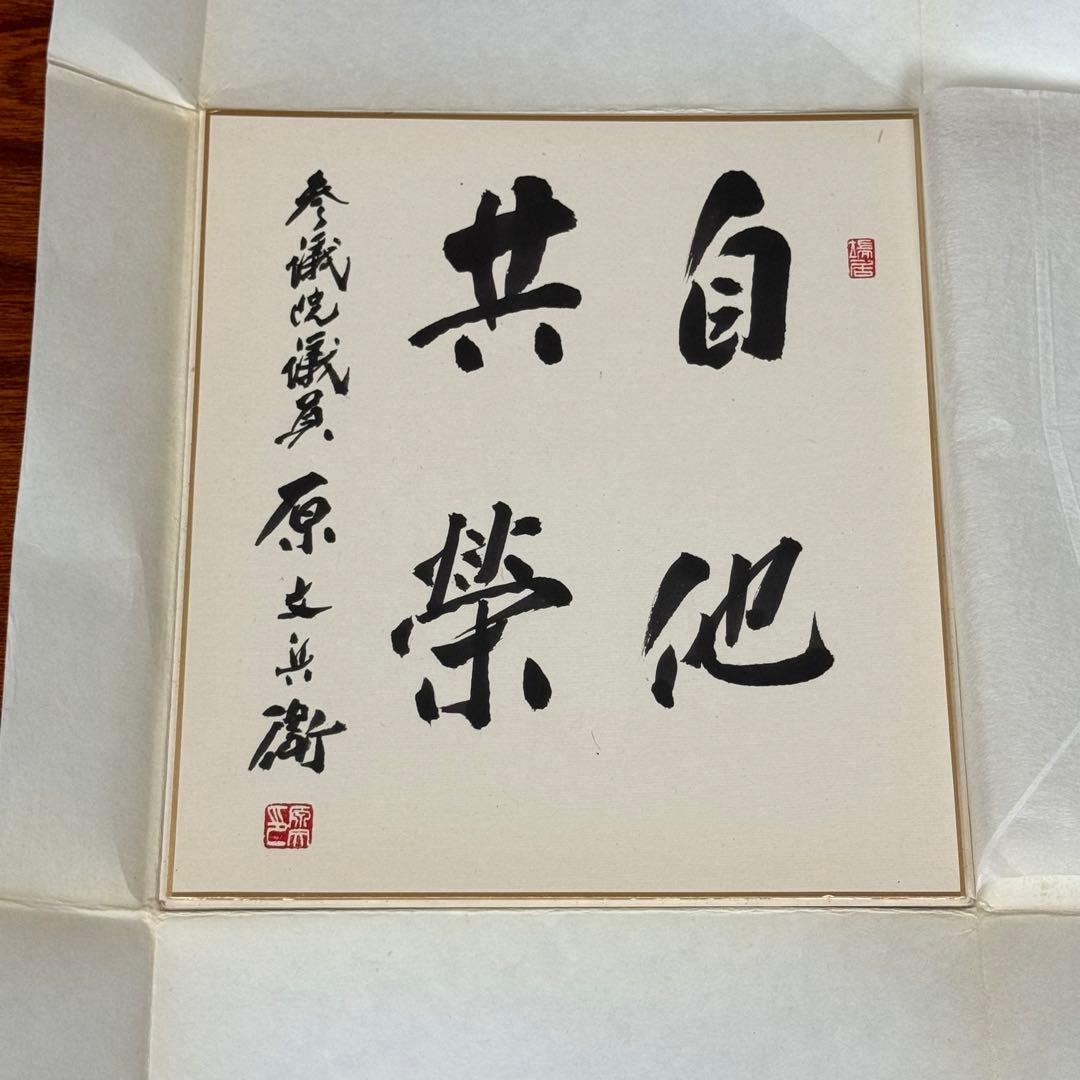 自他
共榮
参議院議員 原文兵衛